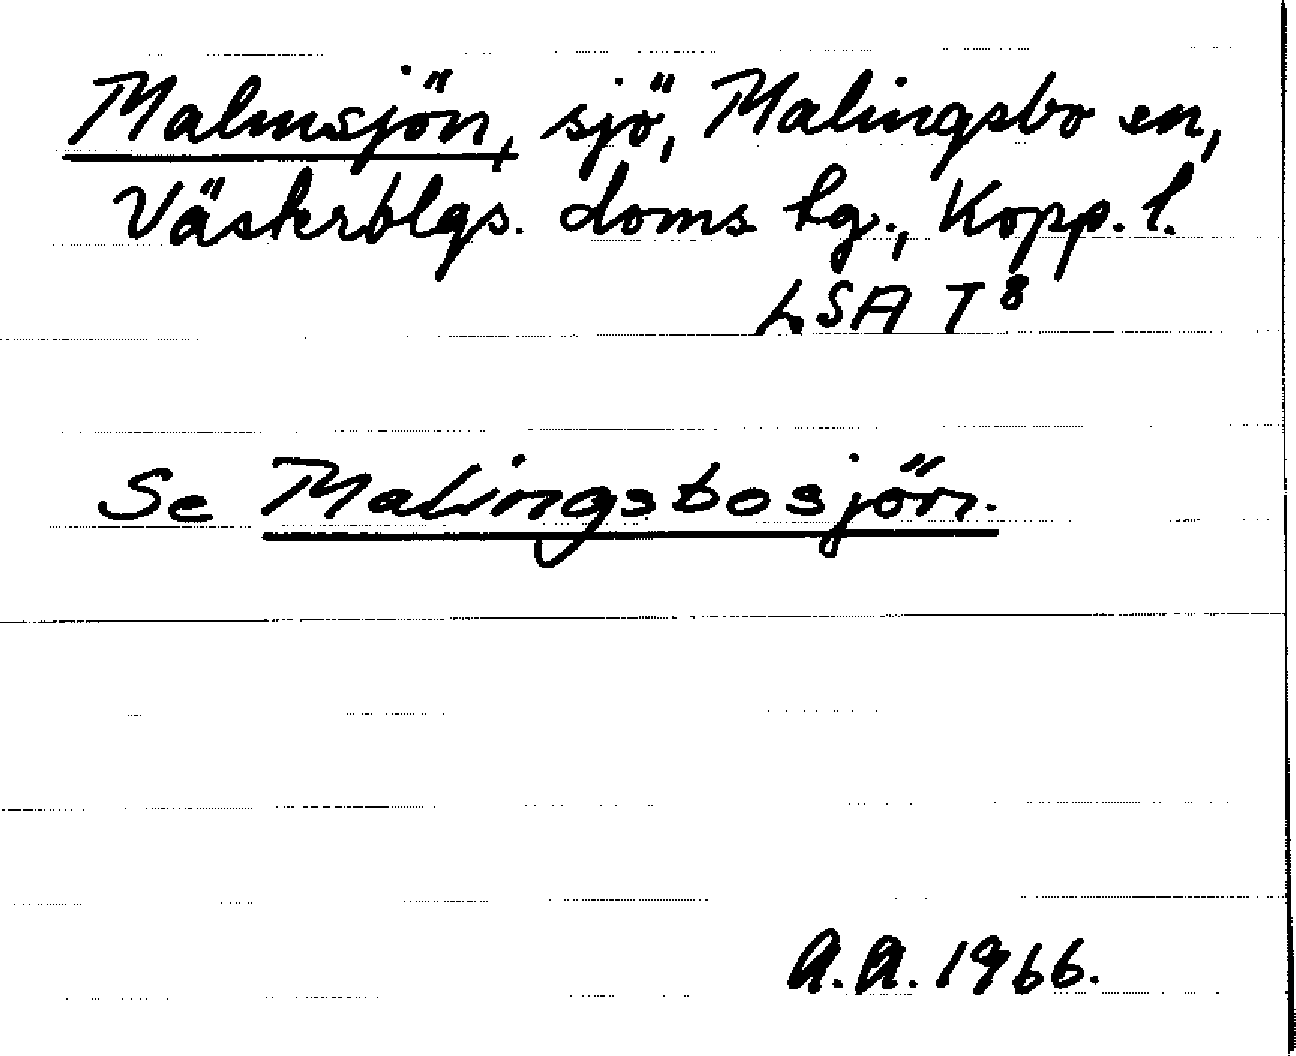 Malmsjön, sjö, Malingsbo sn,
Västerblgs. doms hg., Kopp. l.
LSA T 8
Se Malingsbosjön.
A.A. 1966.